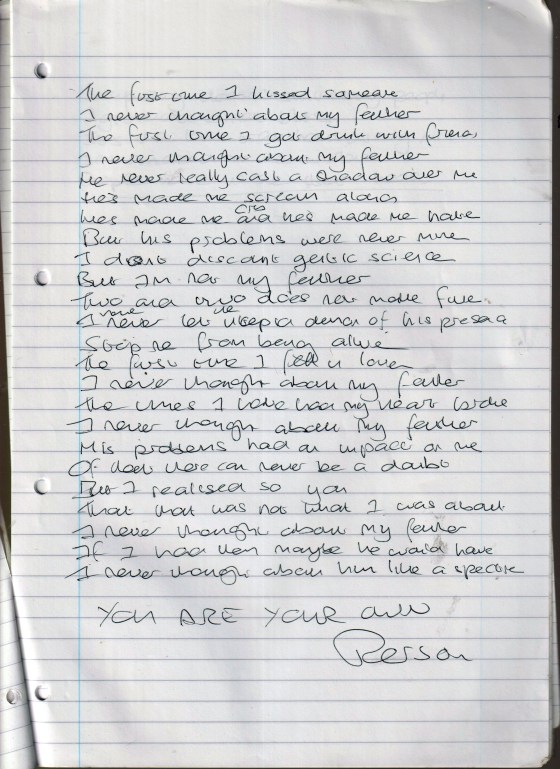 The first time I kissed someone
I never thought about my father
The first time I got drunk with friends
I never thought about my father
He never really cast a shadow over me
He's made me scream along
He's made me cry and he's made me hate
But his problems were never mine
I dont discount genetic science
But I'm not my father
Two and two does not make five
I never let the of his presence
Stop me from being alive
The first time I fell in love
I never thought about my father
The times I have had my heart broke
I never thought about my father
His problems had an impact on me
Of that there can never be a doubt
But I realised so young
That that was not what I was about
I never thought about my father
If I had then maybe he would have
I never thought about him like a spectre
YOU ARE YOUR OWN
Person